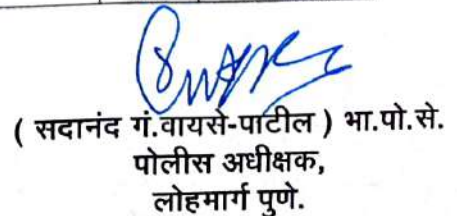 ( सदानंद गं.वायसे-पाटील ) भा.पो.से.
पोलीस अधीक्षक,
लोहमार्ग पुणे.